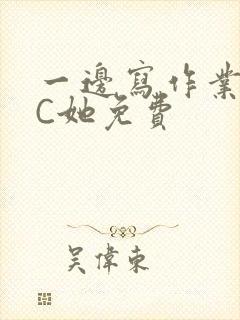 一邊寫作業
C她免費
吳偉東